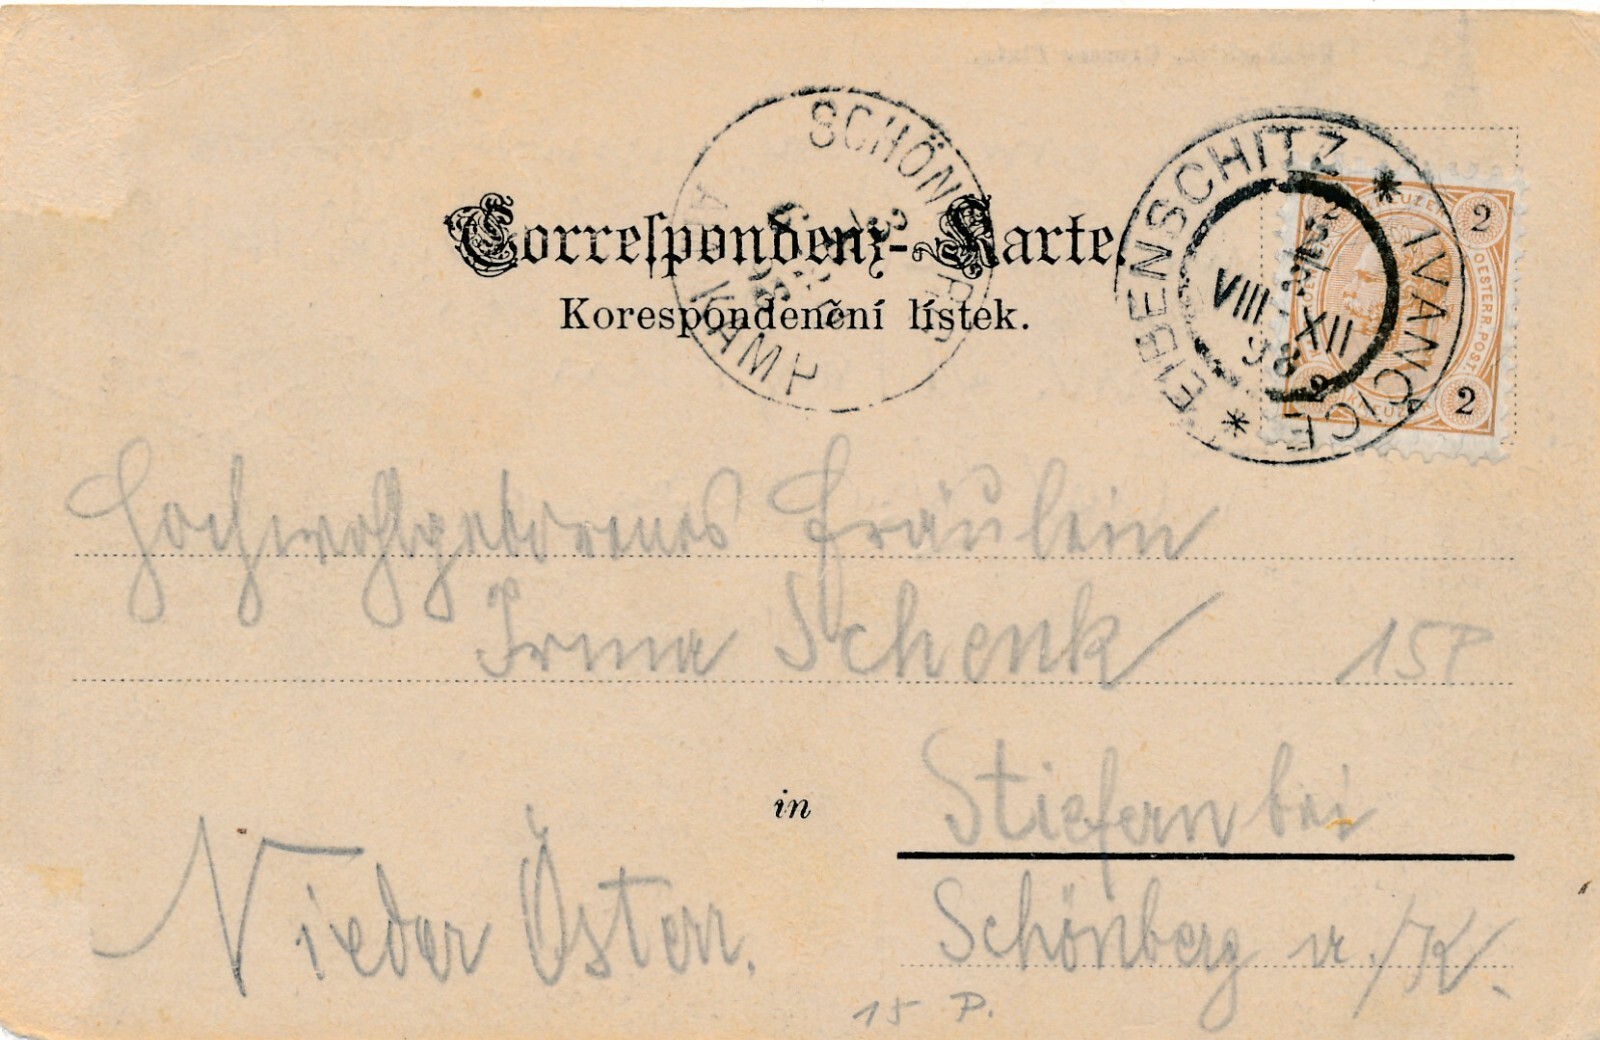 SCHÖNBERG
AM KAMP
Correſpondenz-Karte.
Korespondenční lístek.
EIBENSCHITZ * IVANČICE *
VIII-XII
98
2
2
2
OESTERR. POST
Hochwohlgeborenes Fräulein
Irma Schenk
15P
in
Stiefern bei
Nieder Österr.
Schönberg a./K.
15 P.